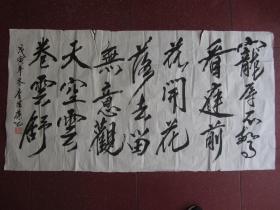 寵辱不驚
看庭前
花開花
落去留
無意觀
天空雲
卷雲舒
戊寅年